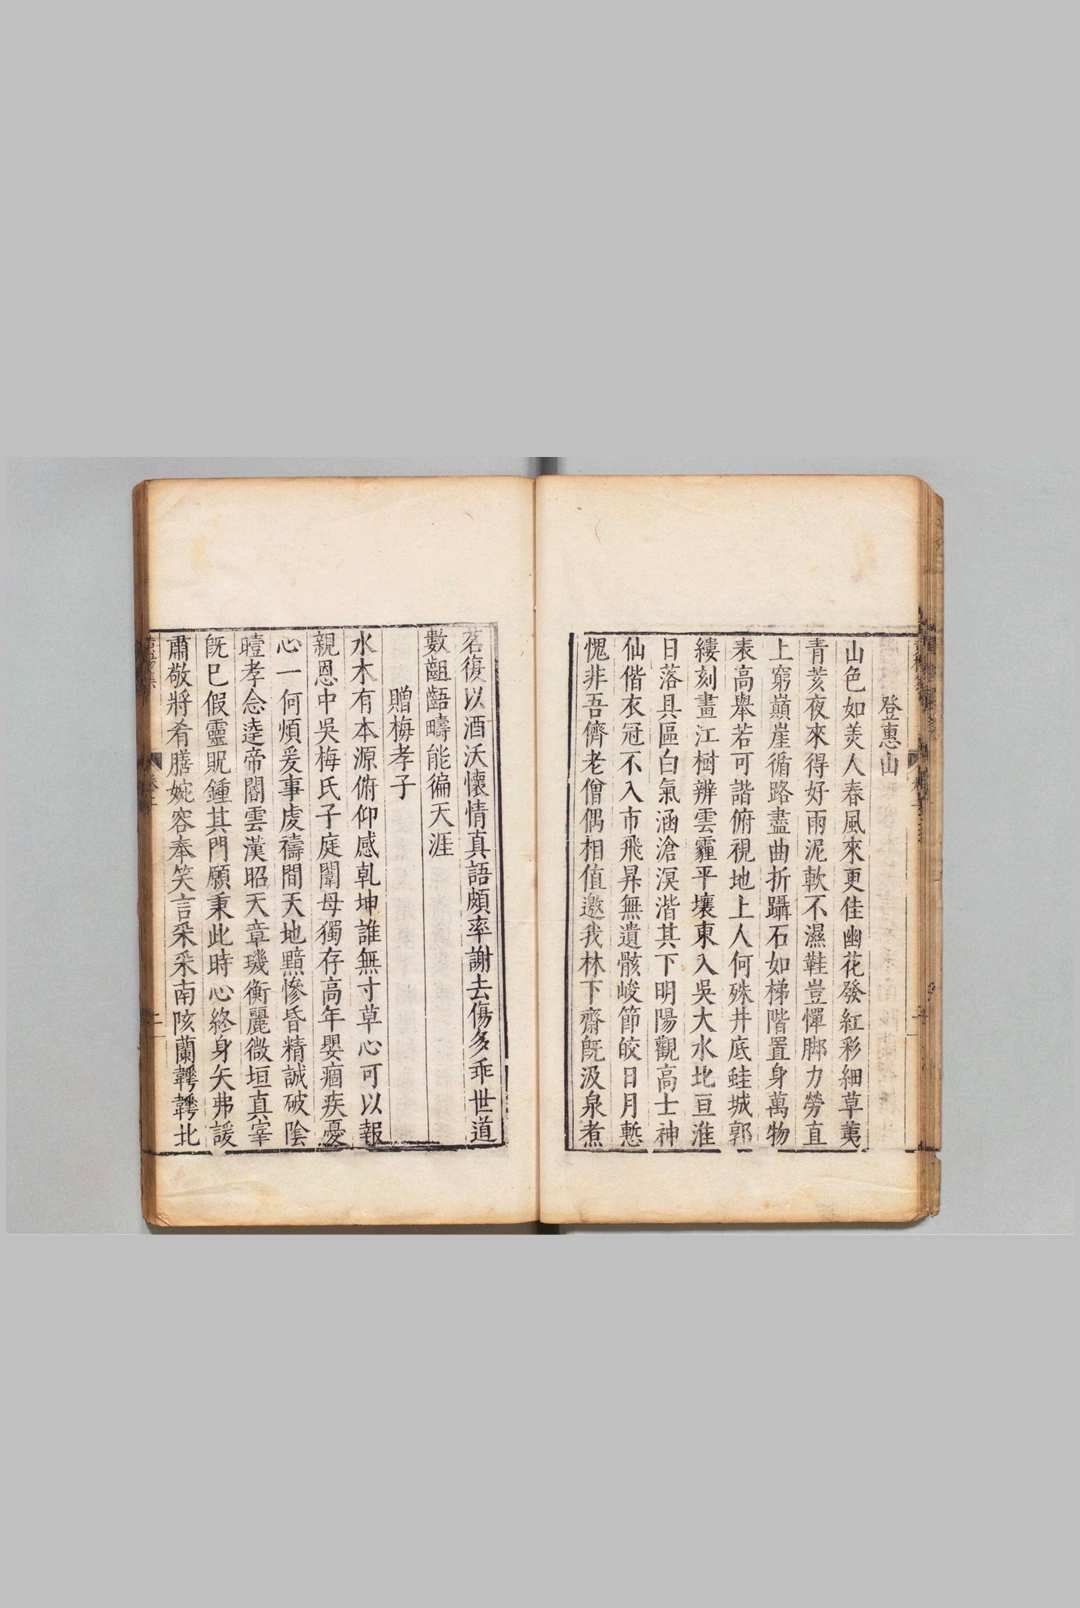 登惠山
山色如美人春風來更佳幽花發紅彩細草荑
青荄夜來得好雨泥軟不濕鞋豈憚脚力勞直
上窮巔崖循路盡曲折躡石如梯階置身萬物
表高舉若可諧俯視地上人何殊井底蛙城郭
縷刻畫江樹辨雲霾平壤東入吳大水北亘淮
日落具區白氣涵滄溟湝其下明陽觀高士神
仙偕衣冠不入市飛昇無遺骸峻節皎日月慙
愧非吾儕老僧偶相值邀我林下齋旣汲泉煮
茗復以酒沃懷情真語頗率謝去傷多乖世道
數齟齬疇能徧天涯
贈梅孝子
水木有本源俯仰感乾坤誰無寸草心可以報
親恩中吳梅氏子庭闈母獨存高年嬰痼疾憂
心一何煩爰事虔禱間天地黯慘昏精誠破陰
曀孝念達帝閽雲漢昭天章璣衡麗微垣真宰
旣已假靈貺鍾其門願秉此時心終身矢弗諼
肅敬將肴膳婉容奉笑言采采南陔蘭韡韡北